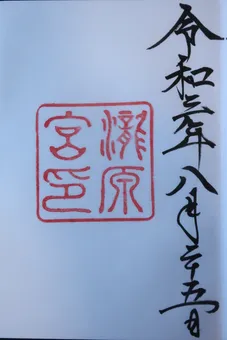 令和六年八月二十五日
瀧原
宮印